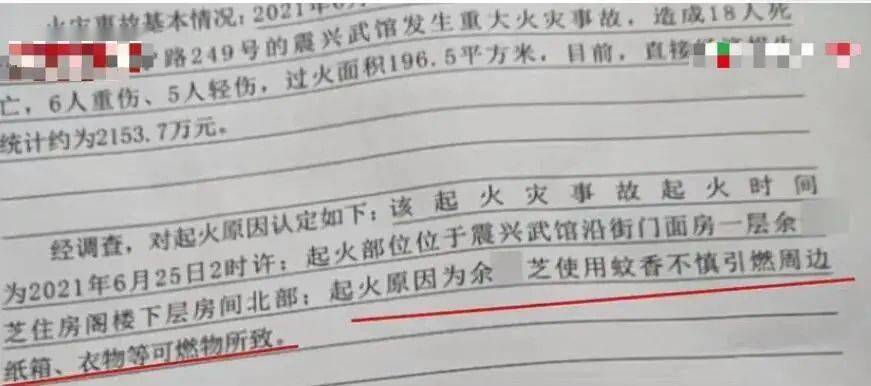 火灾事故基本情况:2021年6月
路249号的震兴武馆发生重大火灾事故,造成18人死
亡,6人重伤、5人轻伤,过火面积196.5平方米,目前,直接经济损失
统计约为2153.7万元。
经调查,对起火原因认定如下:该起火灾事故起火时间
为2021年6月25日2时许;起火部位位于震兴武馆沿街门面房一层余
芝住房阁楼下层房间北部;起火原因为余 芝使用蚊香不慎引燃周边
纸箱、衣物等可燃物所致。